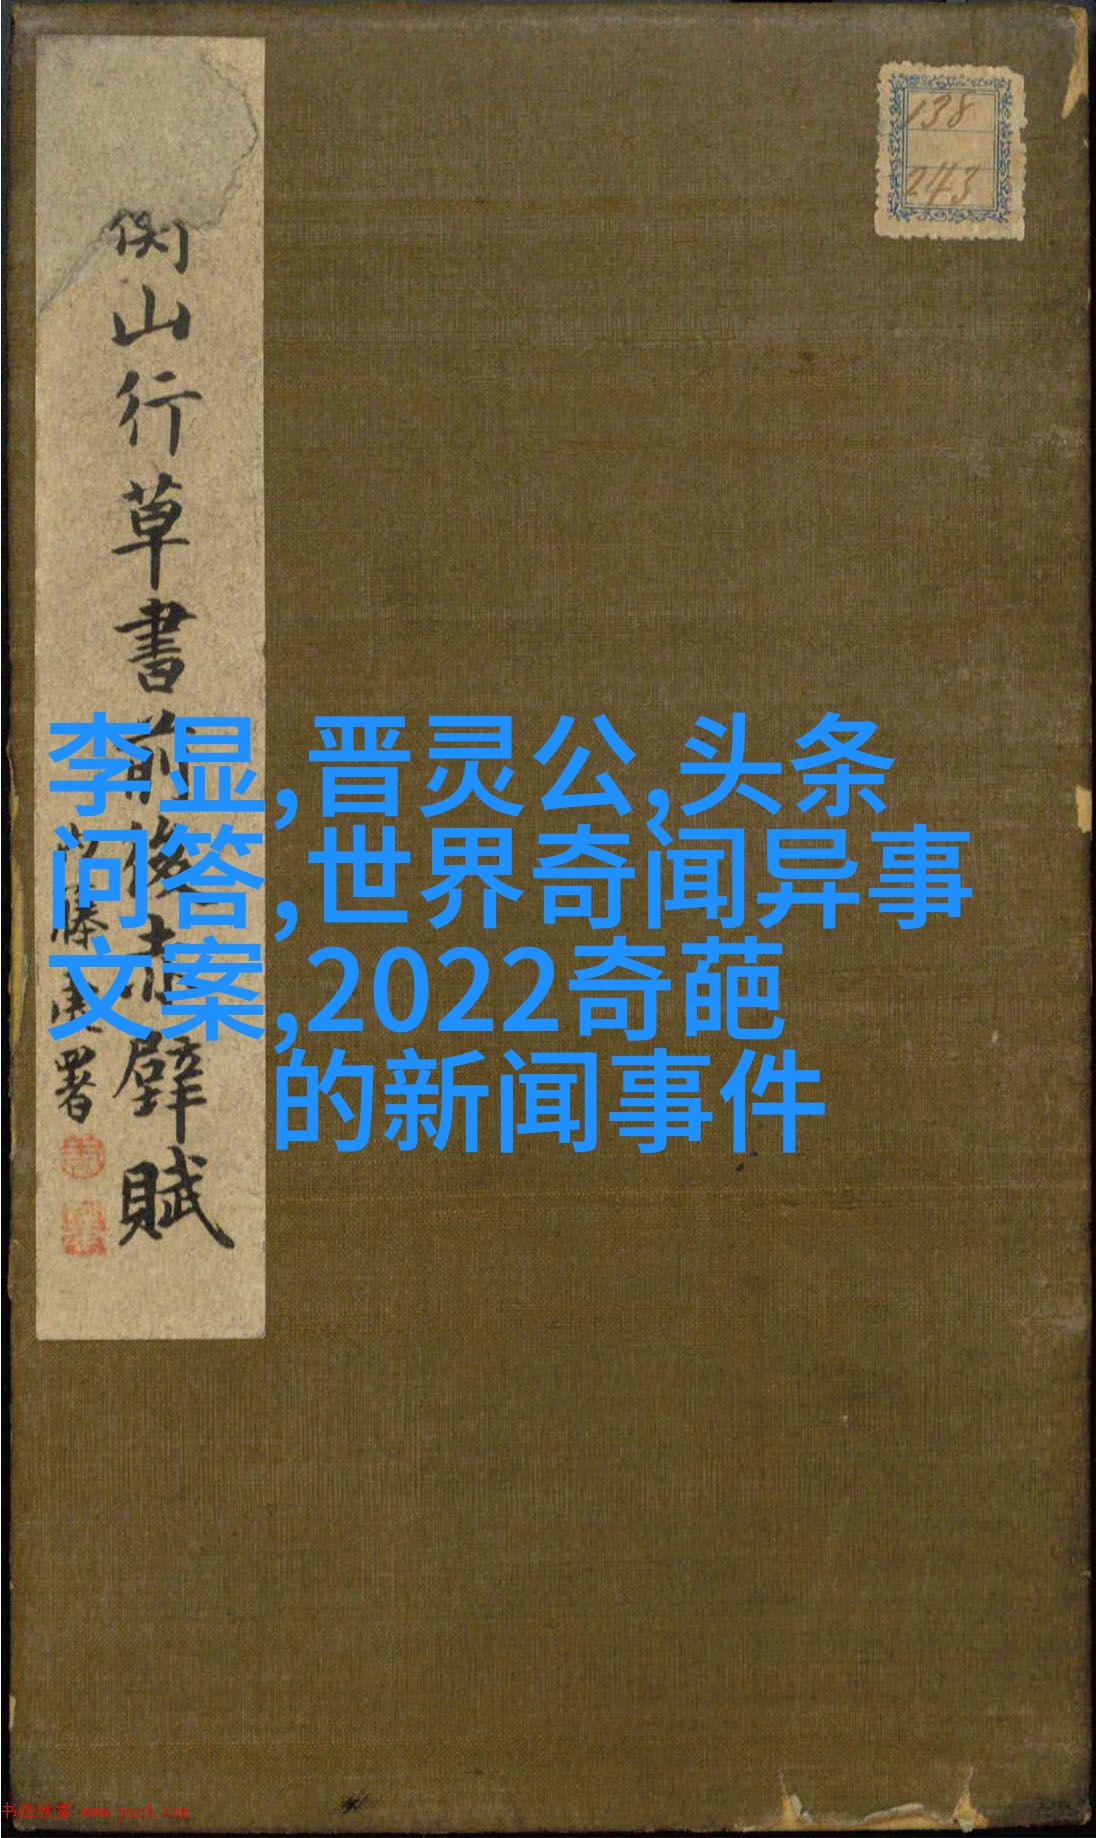 衡山行草書前後赤壁賦
署
138
243
李显,晋灵公,头条
问答,世界奇闻异事
文案,2022奇葩
的新闻事件
书法欣赏 www.yac8.com